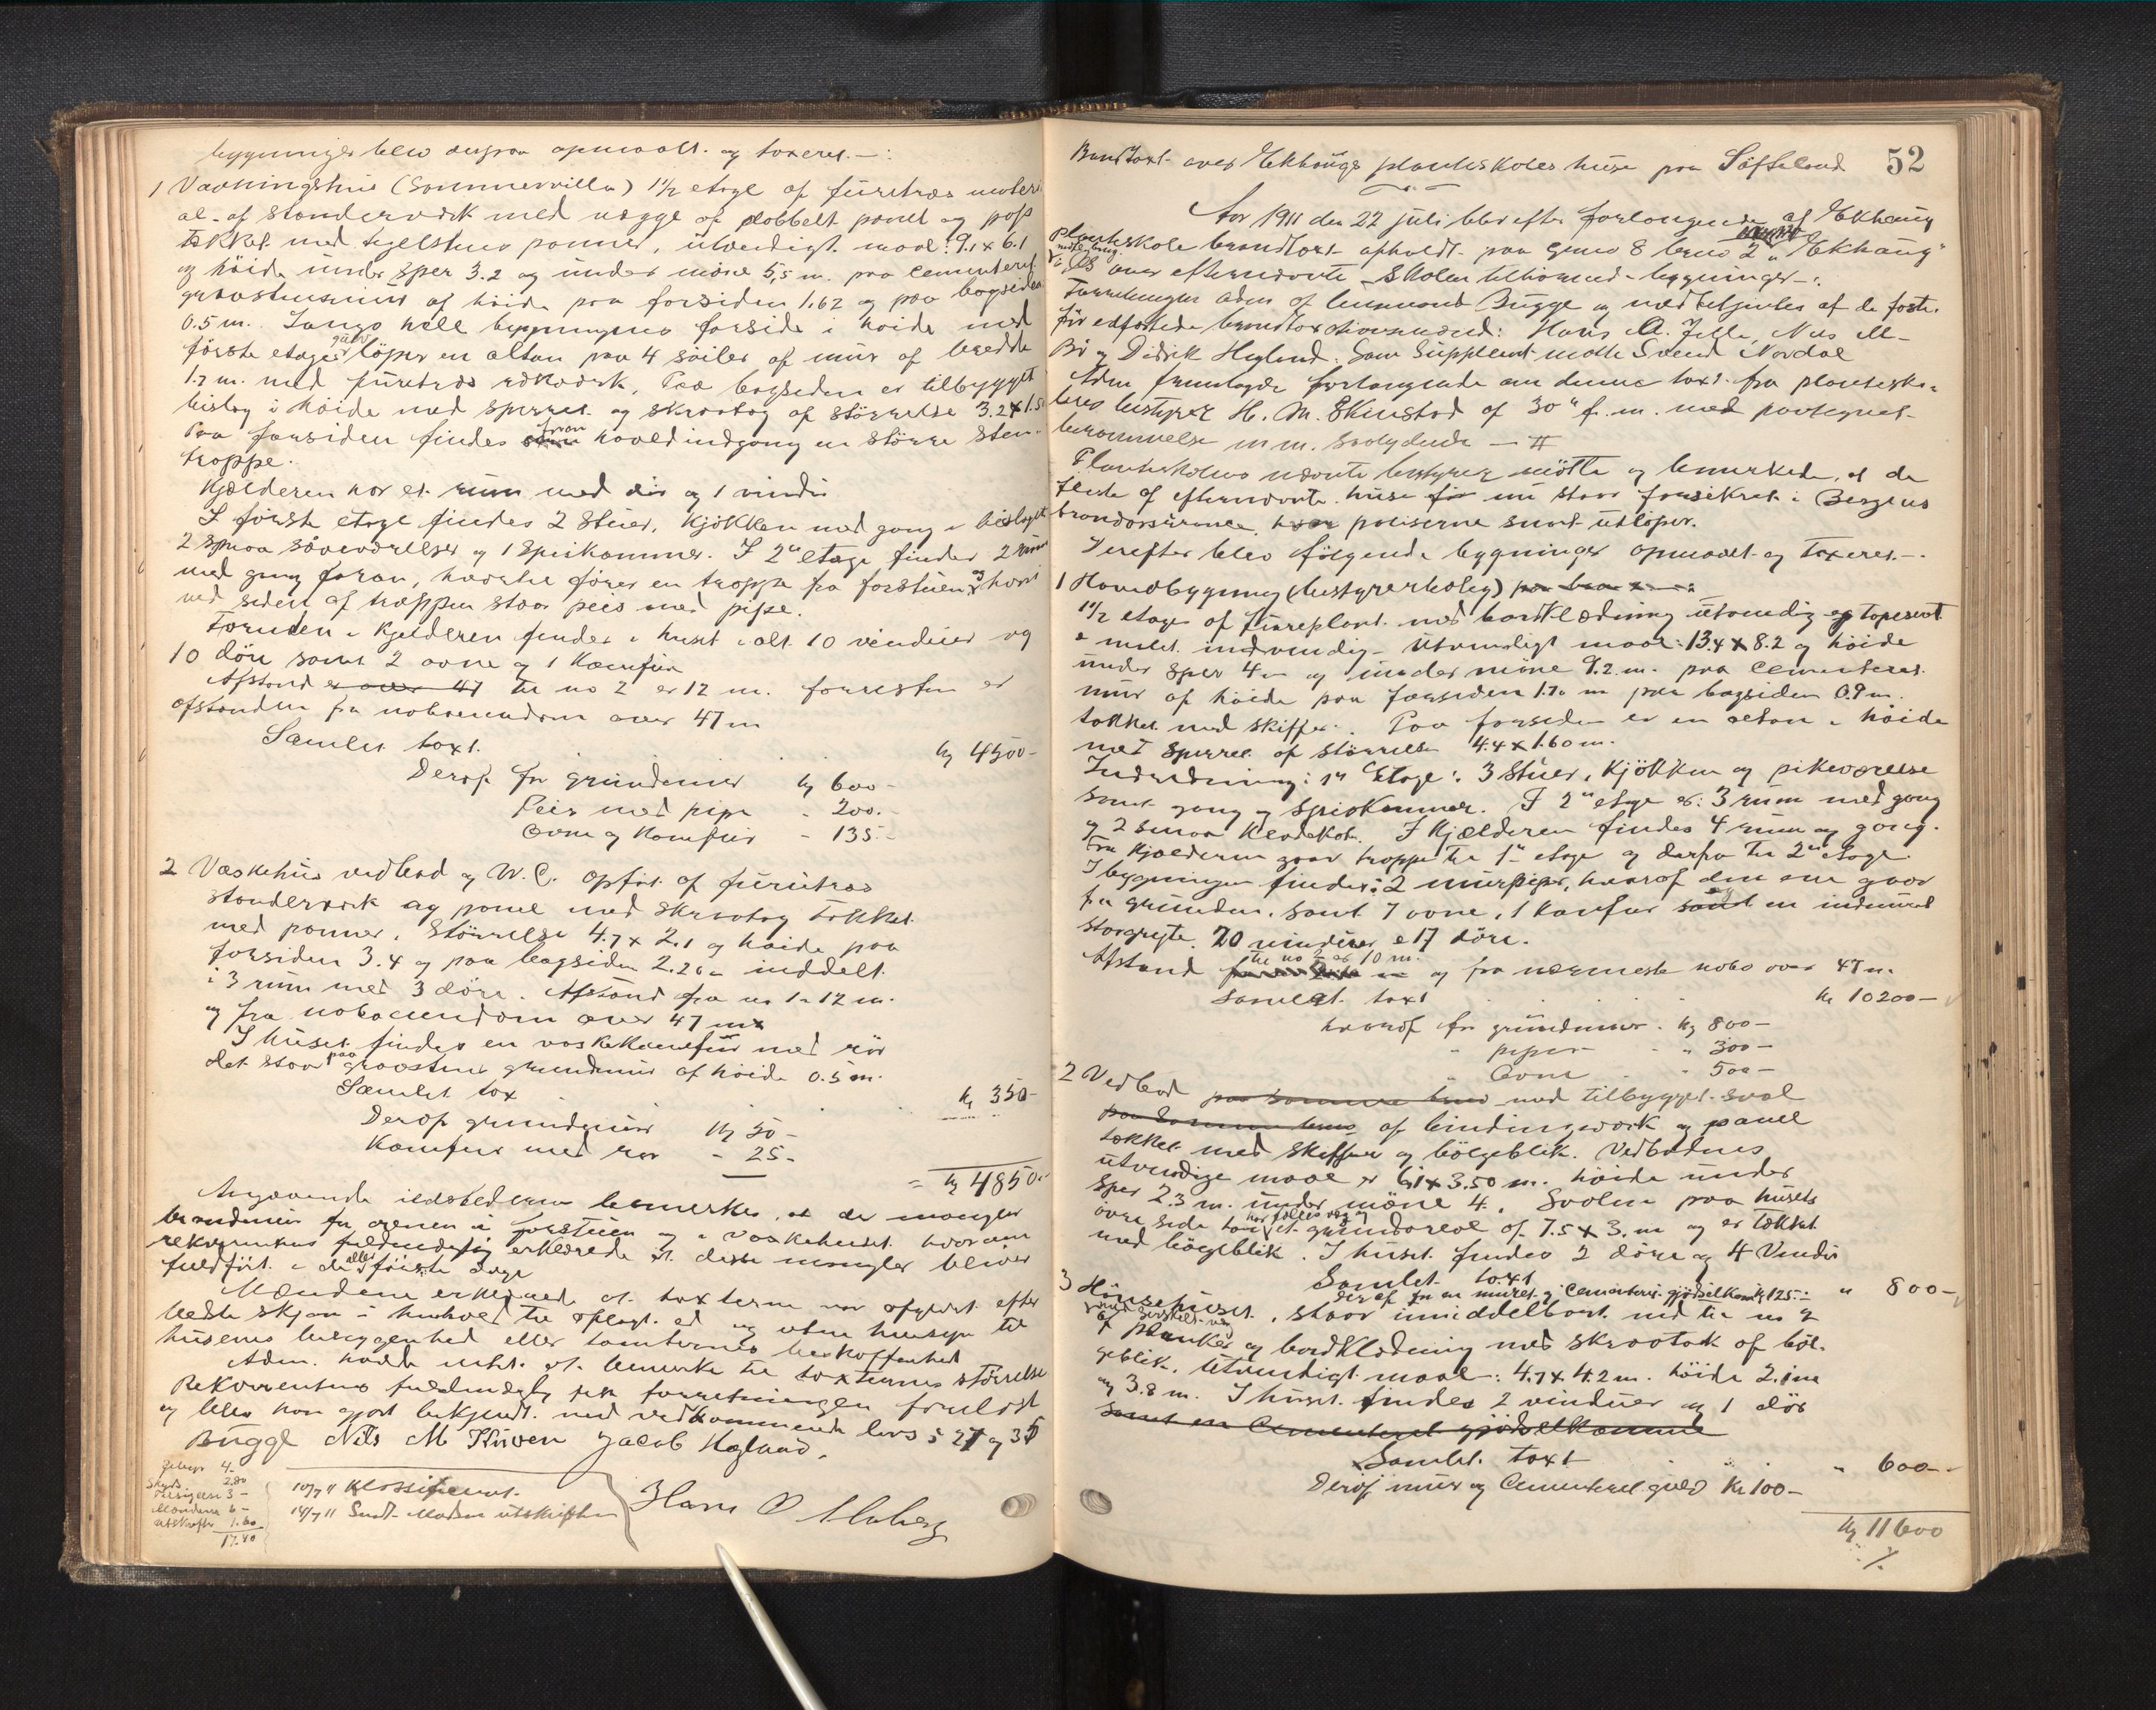 bygninger blev derpaa opmaalt og taxeret.—:
1 Vaaningshus (Sommervilla) 1 1/2 etage af furutræs materi
al af standerværk med vægge af dobbelt panel og pap
tækket med tegelstens panner, utvendigt maal: 9.1 x 6.1
og höide under sper 3.2 og under möne 5,5 m. paa cementeret
graastensmur af höide paa forsiden 1.62 og paa bagsiden
0.5 m. Langs hele bygningens forside i höide med
förste etages gulv löper en altan paa 4 söiler af mur af bredde
1.7 m. med furutræs rækværk. Paa bagsiden er tilbygget
bislag i höide med sperret og skraatag af störrelse 3.2 x 1.5
Paa forsiden findes foran hovedindgang en större sten-
trappe.
Kjælderen har et rum med dör og 1 vindu
I förste etage findes 2 stuer, kjökken med gang i bislaget
2 smaa soveværelser og 1 spiskammer. I 2den etage findes 2 rum
med gang foran, hvortil förer en trappe fra forstuen, og hvori
ved siden af trappen staar peis med pipe.
Foruden i kjelderen findes i huset i alt 10 vinduer og
10 döre samt 2 ovne og 1 komfur
Afstand er over 47 til no 2 er 12 m. forresten er
afstanden fra naboeiendom over 47 m
Samlet taxt. kr 4500-
Deraf for grundmur kr 600-
Peis med pipe - 200.-
Ovne og komfur - 135.-
2 Vaskehus vedbod og W.C. opfört af furutræs
standerværk og panel med skraatag tækket
med panner. Störrelse 4.7 x 2.1 og höide paa
forsiden 3.4 og paa bagsiden 2.20 inddelt
i 3 rum med 3 döre. Afstand fra no 1 12 m.
og fra naboeiendom over 47 m
I huset findes en vaskekomfur med rör
det staar paa graastens grundmur af höide 0.5 m.
Samlet tax kr 350-
Deraf grundmur kr 50-
Komfur med rör - 25-
= kr 4850.-
Angaaende ildstederne bemerkes, at der mangler
brandmur for ovnen i forstuen og i vaskehuset hvorom
rekvirentens fuldmægtig erklærede at disse mangler bliver
fuldfört i de allerförste dage
Mændene erklærede at taxterne var afgivet efter
bedste skjön i henhold til aflagt ed og uten hensyn til
husenes beliggenhed eller tomternes beskaffenhed
Adm. havde intet at bemerke til taxternes störrelse
Rekvirentens fuldmægtig fik forretningen forelæst
og blev han gjort bekjendt med vedkommende lovs § 27 og 35
Bugge Nils M Kuven Jacob Hegland.
Hans O Moberg
Gebyr 4-
Skyds 2.80
Tilsigelse 3-
Mændene 6-
Utskrifter 1.60
17.40
10/7 11 Klassificeret.
14/7 11 Sendt Madsen utskriften
52
Brandtaxt over Ekhaugs planteskoles huse paa Söfteland
Aar 1911 den 22 juli blev efter forlangende af Ekhaug
planteskole brandtaxt afholdt paa gnno 8 brno 2 „Ekhaug"
i Os over efternævnte skolen tilhörende bygninger—:
Forretningen adm af lensmand Bugge og med betjentes af de faste
för edfæstede brandtaxtmænd: Hans A. Jelle, Nils M
Bö og Didrik Hegland. Som Suppleant mötte Svend Nordal
Adm fremlagde forlangende om denne taxt fra plantesko-
lens bestyrer H. M. Skinstad af 30te f. m. med paategnet
berammelse m.m. saalydende — #
Planteskolens nævnte bestyrer mötte og bemerkede, at de
fleste af efternævnte huse for nu staar forsikret i Bergens
brandassurance, hvor poliserne snart utlöper.
Derefter blev fölgende bygninger opmaalt og taxeret—.
1 Hovedbygning (bestyrerbolig)
1 1/2 etage af fureplank med bordklædning utvendig og tapeseret
e malet indvendig- Utvendigt maal: 13.4 x 8.2 og höide
under sper 4 m og under möne 9.2 m. paa cementeret
mur af höide paa forsiden 1.70 m paa bagsiden 0.9 m.
tækket med skiffer. Paa forsiden er en altan i höide
med sperret af störrelse 4.4 x 1.60 m.
Inndredning: 1ste etage: 3 stuer, kjökken og pikeværelse
samt gang og spiskammer. I 2den etage er: 3 rum med gang
og 2 smaa kleskot. I kjælderen findes 4 rum og gang.
Fra kjælderen gaar trappe til 1ste etage og derfra til 2den etage.
I bygningen findes: 2 murpiper, hvoraf den ene gaar
fra grunden, samt 7 ovne, 1 komfur og en indmuret
storgryte. 20 vinduer e 17 döre.
Afstand til no 2 er 10 m. og fra nærmeste nabo over 47 m.
Samlet taxt kr 10200-
hvoraf for grundmur. kr 800-
" piper " 300-
" Ovne " 500-
2 Vedbod paa samme brno med tilbygget sval
paa samme brno af bindingsværk og panel
tækket med skiffer og bölgeblik. Vedbodens
utvendige maal er 6.1 x 3.50 m. höide under
sper 2.3 m. under möne 4. Svalen paa husets
övre side har fælles væg og et grundareal af 7.5 x 3. m og er tækket
med bölgeblik. I huset findes 2 döre og 4 vindu
Samlet taxt " 800-
deraf for en muret og cementeret gjödselkum kr 125.-
3 Hönsehuset, staar imiddelbart ned til no 2
med særskilt væg
af planker og bordklædning med skraatak af böl-
geblik. Utvendigt maal: 4.7 x 4.2 m. höide 2.1 m
og 3.8 m. I huset findes 2 vinduer og 1 dör
samt en Cementeret gjödselkumme
Samlet taxt " 600-
Deraf mur og Cementeret gulv kr 100-
kr 11600
./.